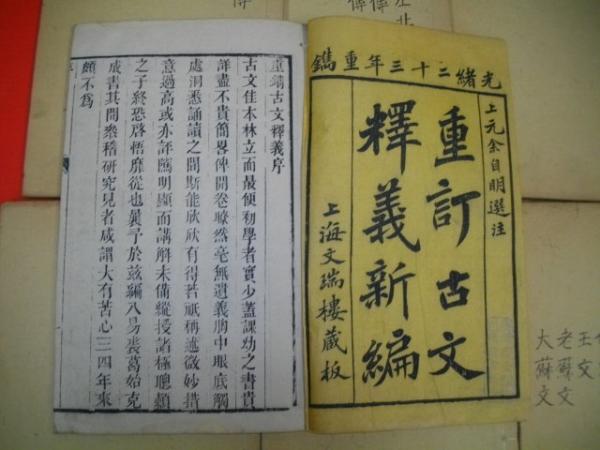 光緒二十三年重鐫
上元余自明選注
重訂古文
釋義新編
上海文瑞樓藏板
古文釋義序
古文佳本林立而最便初學者實少蓋課幼之書貴
詳盡不貴簡畧俾開卷皎然毫無遺義胸中眼底觸
處洞悉誦讀之間斯能欣欣有得若祇稱述微妙措
意過高或亦評隲明顯而講解未備縱授諸極聰穎
之子終恐啓悟靡從也曩予於茲編八易裘葛始克
成書其間叅稽研究見者咸謂大有苦心三四年來
頗不爲
王文
老蘇文
大蘇文